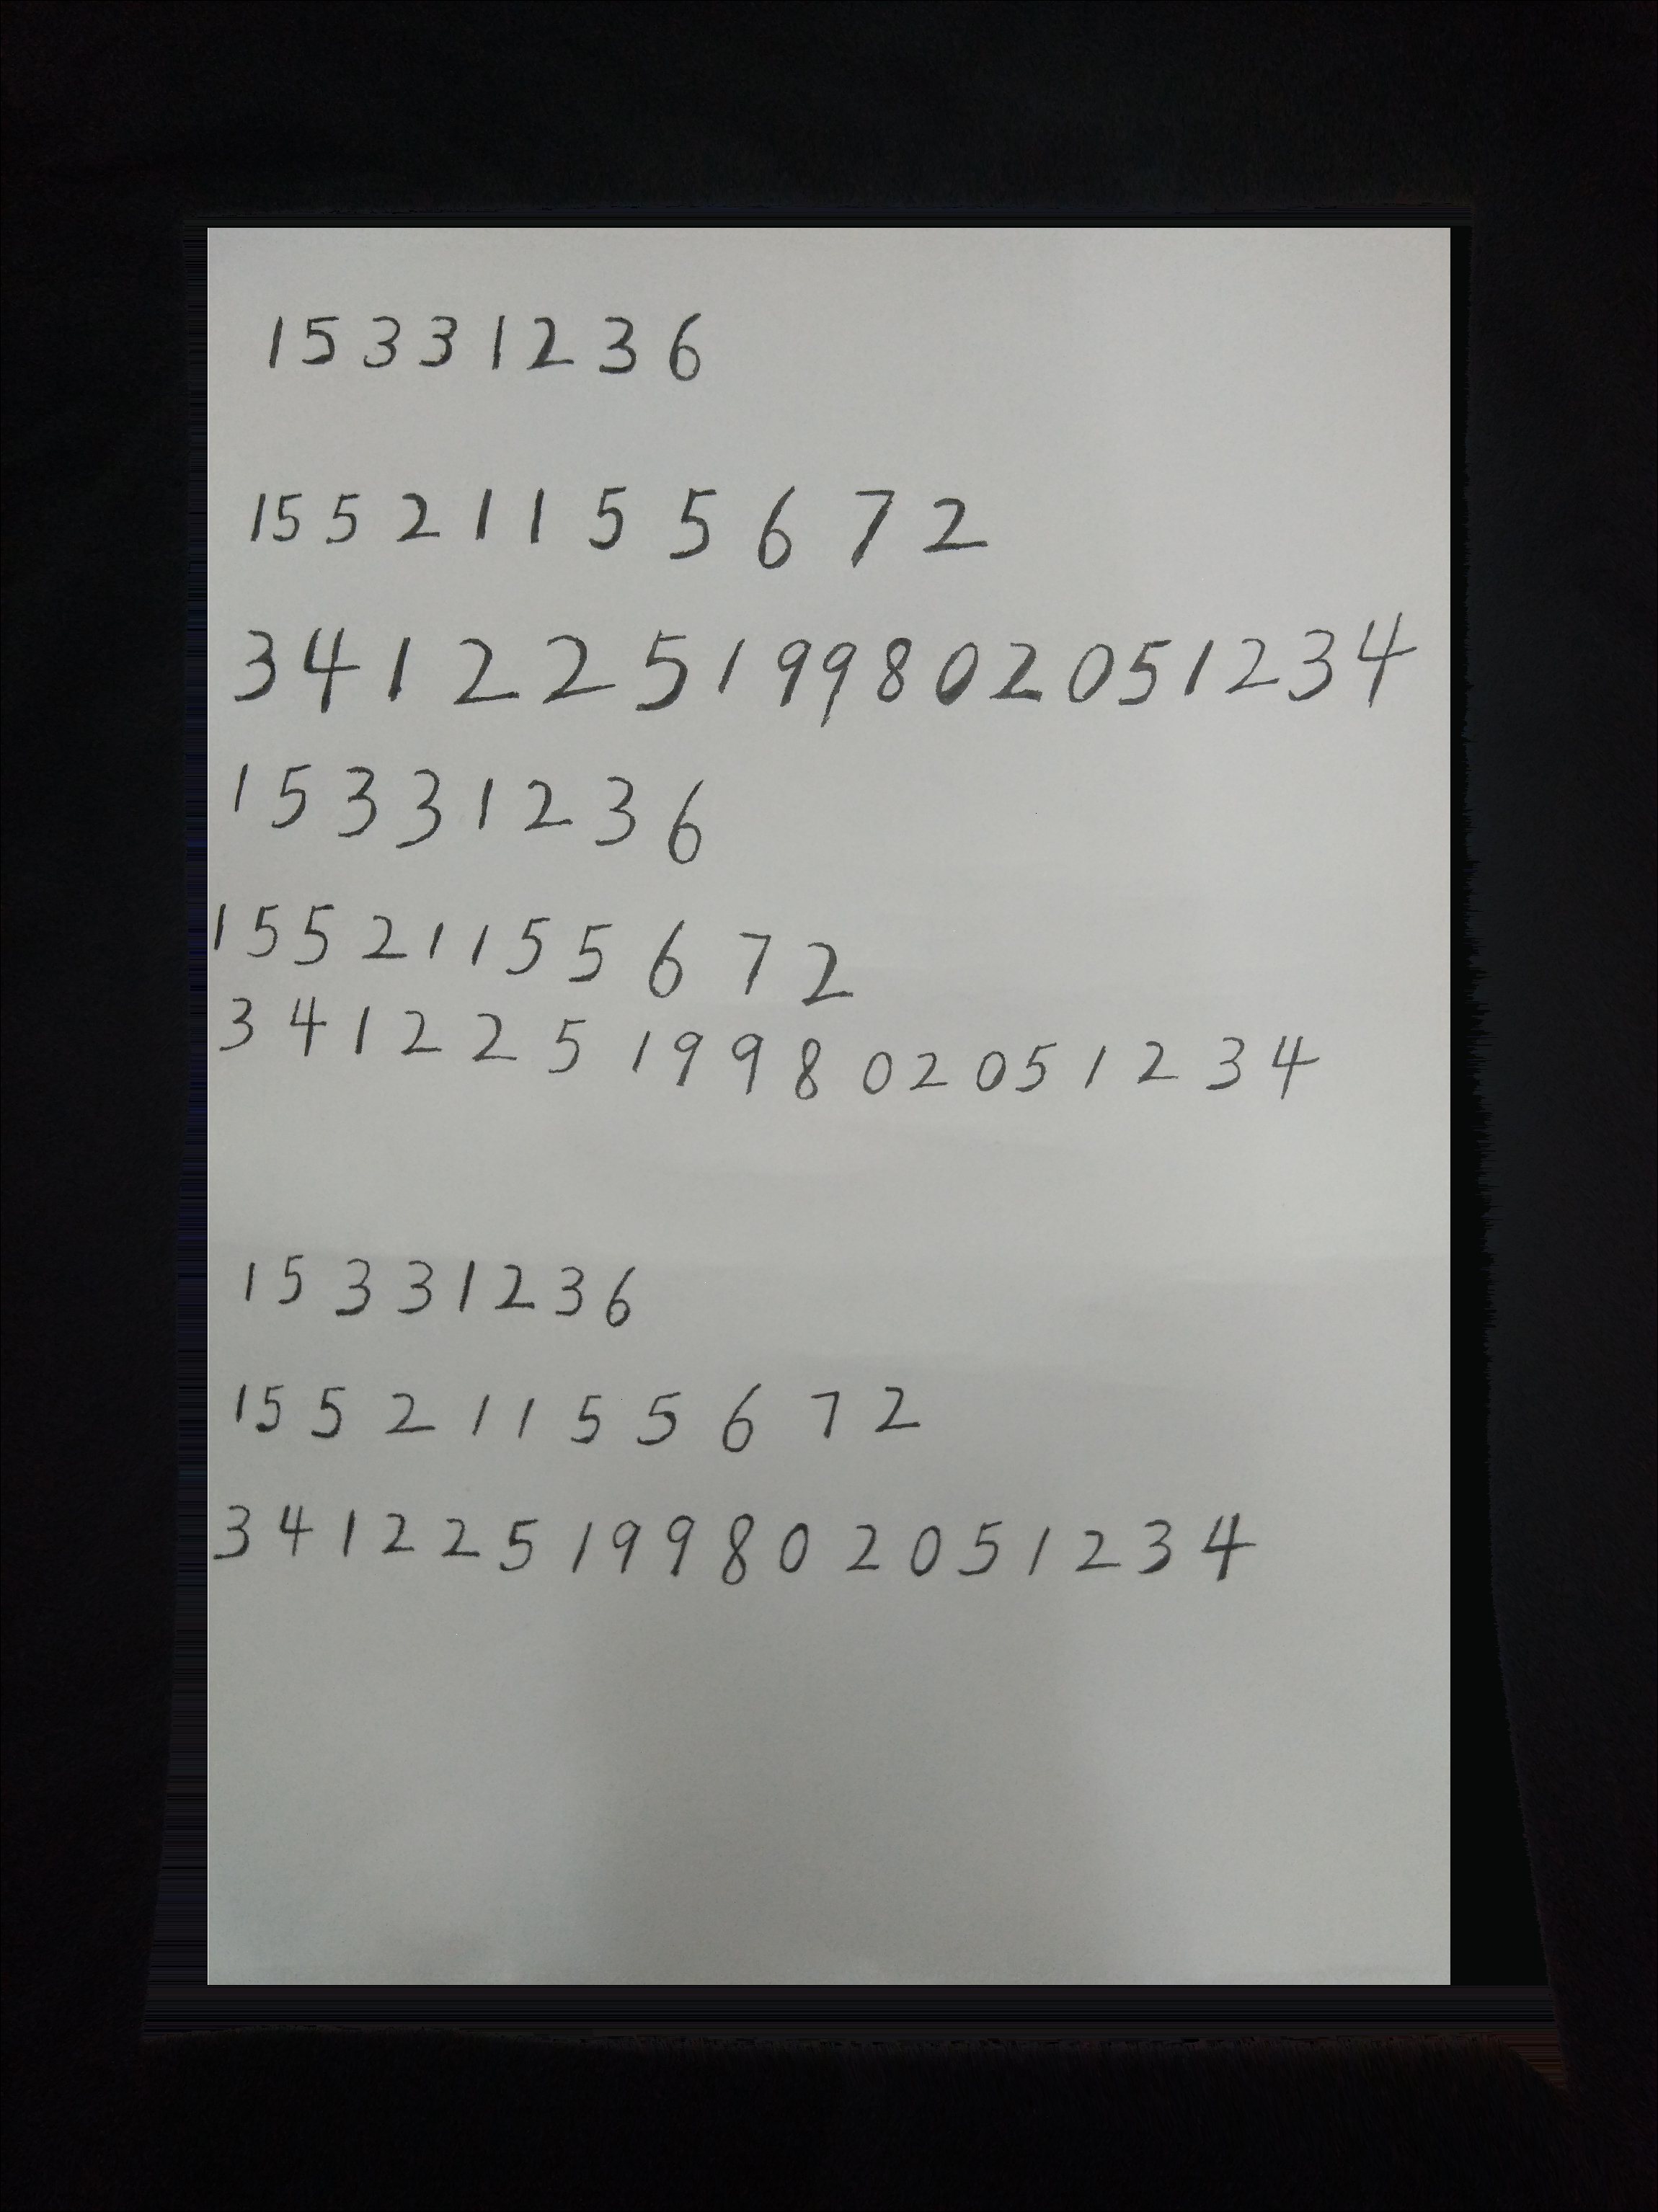 15331236
15521155672
341225199802051234
15331236
15521155672
341225199802051234
15331236
15521155672
341225199802051234